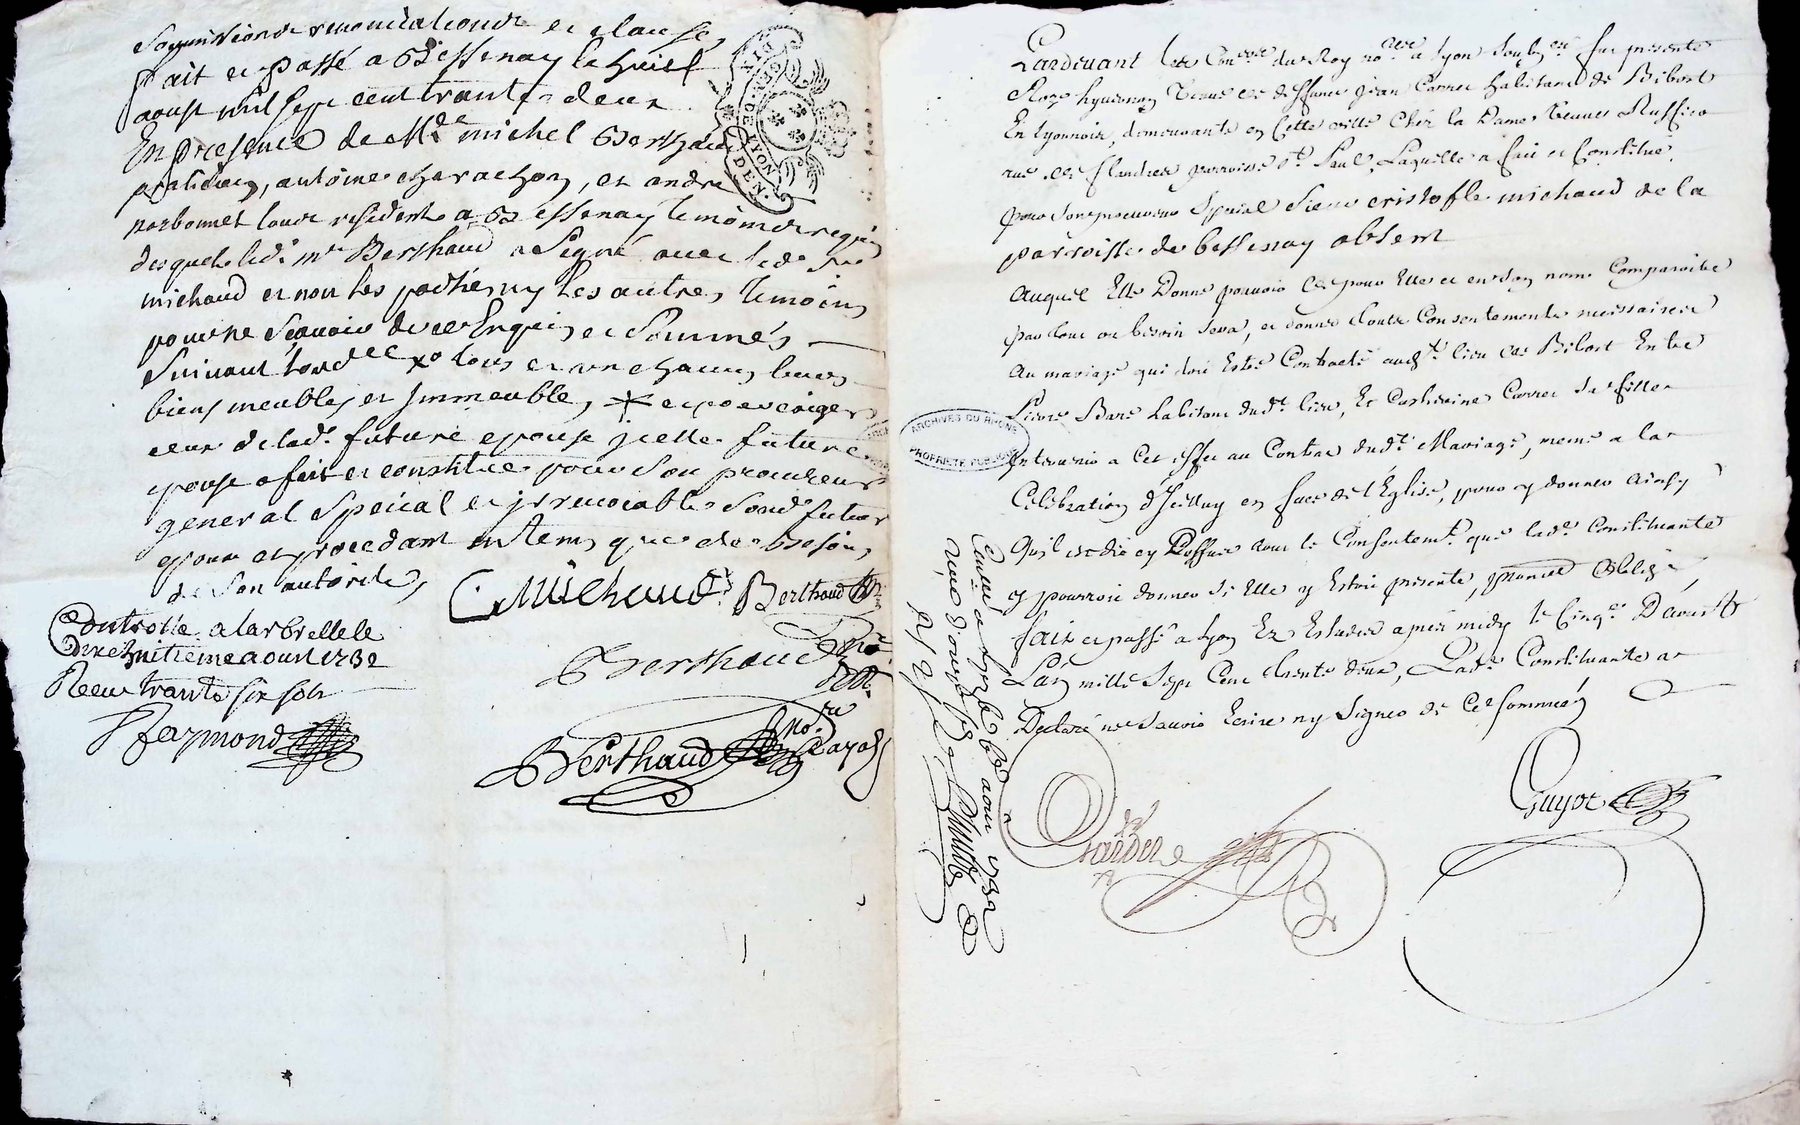 Soumissions renonciations et clauses
fait et passé a Bessenay le huict
aoust mil sept cent trante deux
En presence de Me michel Berthaud
praticien, antoine charachon, et andre
narbonnet tous residents a Bessenay temoins requis
desquels led. mr Berthaud a signé avec led. Sr
michaud et non les parties ny les autres temoins
pour ne sçavoir de ce Enquis et Sommés
Suivant lord.ce xº tous et un chacuns leurs
biens meubles et immeubles, ✳ et pour exiger
ceux de lad. future epouse icelle future
epouse a fait et constitue pour son procureur
general special et irrevocable Sond. futur
epoux et procedant en tems que de besoin
de son autorité,
CMichaud Berthaud
Controllé a larbrelle le
dixehuitieme aoust 1732
Receu trante six sols
Raymond
Berthaud
Berthaud no.re Royal
DEN. LYON
Pardevant les Con.ers du Roy no.res a Lyon soubz.nés fut presente
veuve de deffunct Jean Carret habitante de Bibost
En Lyonnois, demeurante en cette ville chez la Dame Veuve Ruffier
rue de flandres parroisse St. Paul, Laquelle a fait et constitue
pour son procureur special Sieur cristofle michaud de la
parroisse de bessenay absent
Auquel Elle Donne pouvoir de pour Elle et en son nom Comparoitre
par tout ou besoin sera, et donner toute Consentements necessaires
au mariage qui doit Estre Contracté aud.t lieu de Bibost Entre
Pierre Bare habitant dud.t lieu, Et Catherine Carret sa fille
Intervenir a cet effet au Contrat dud.t Mariage, meme a la
Celebration d'Icelluy en face de l'Église, pour y donner ainsy
Qu'il est dit cy Dessus tout le Consentem.t que lad.e Constituante
y pourroit donner si Elle y Estoit presente, promet Obligé
fait et passé a Lyon Ez Estudes apres midy le Cinq.e D'aoust
L'an mille Sept Cent trente deux, Lad.e Constituante a
Declaré ne Sçavoir Ecrire ny Signer de Ce Sommée
Guyot
ARCHIVES DU RHÔNE
PROPRIÉTÉ PUBLIQUE
aoust 1732